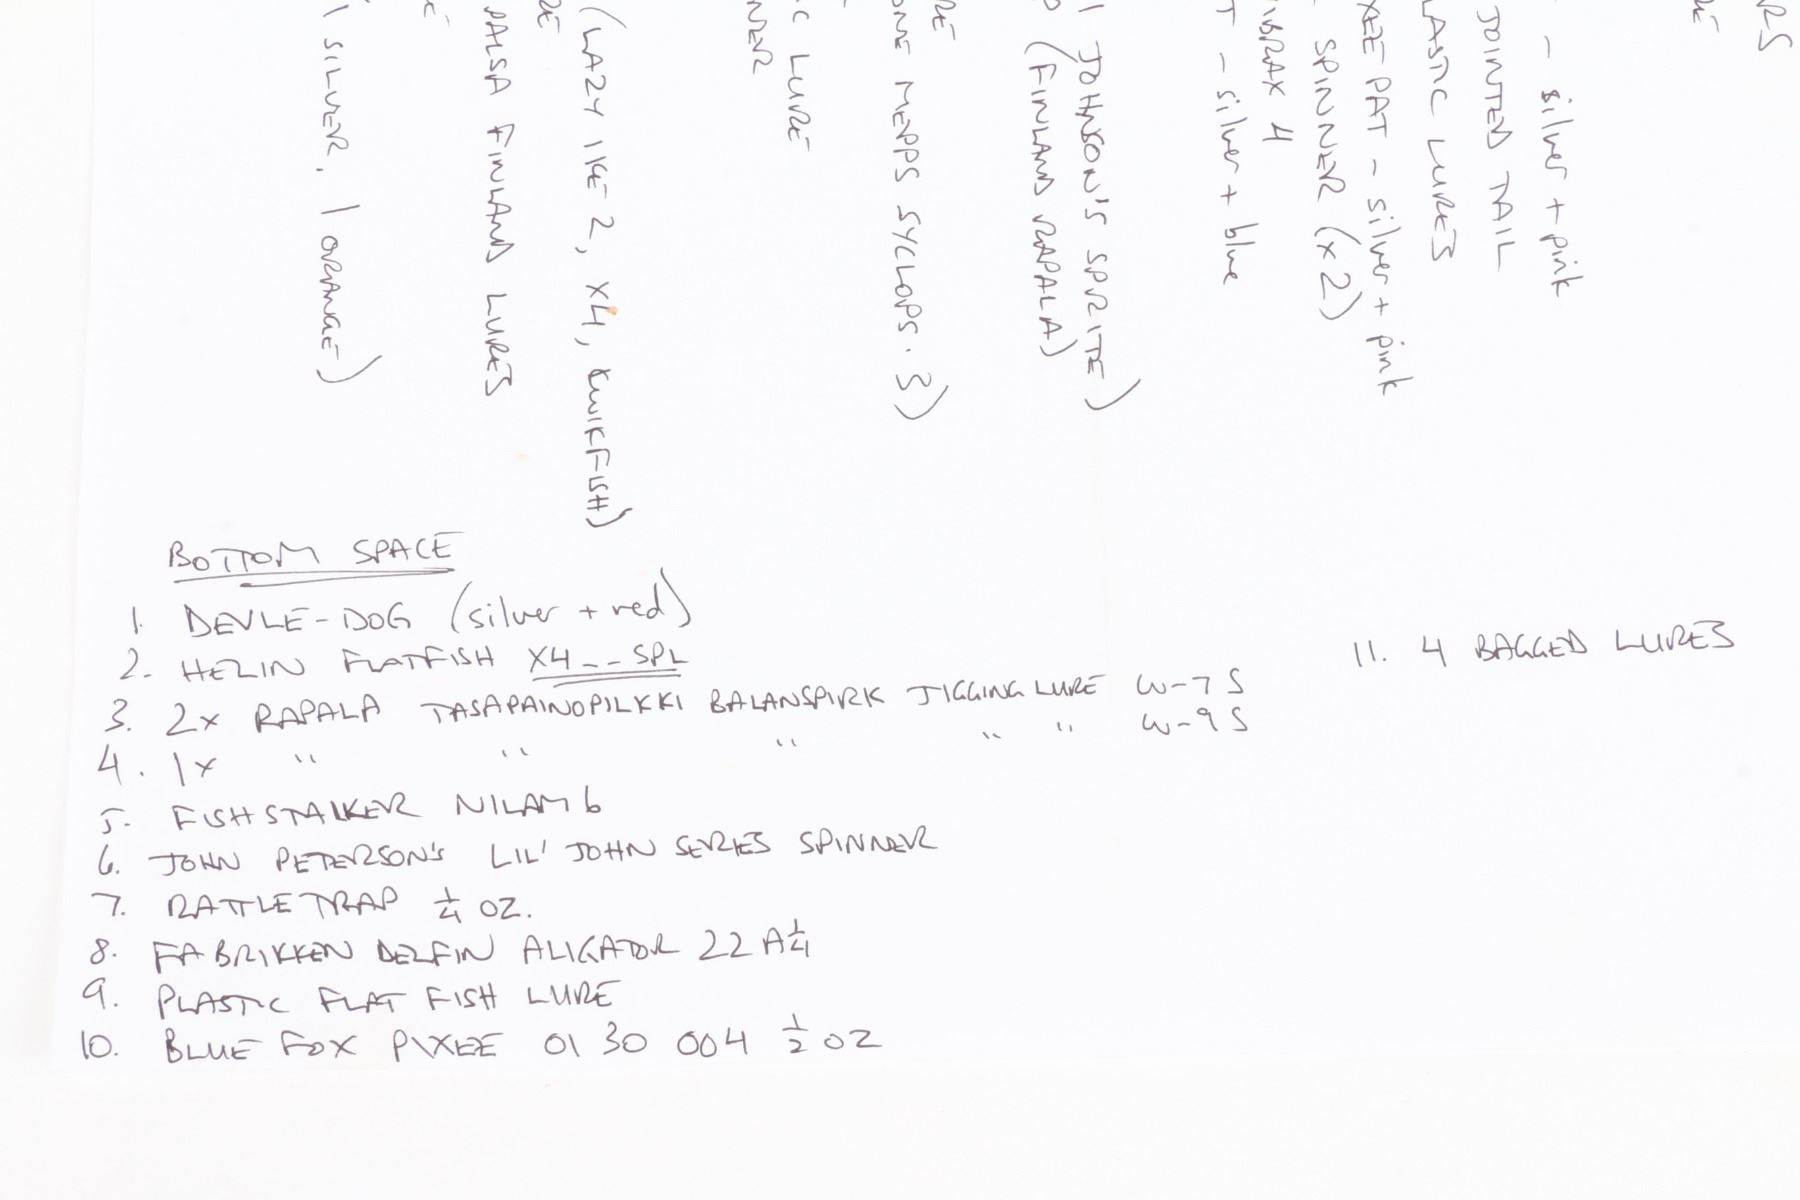 RS
RE
– silver + pink
JOINTED TAIL
LASTIC LURES
XEE PAT – silver + pink
SPINNER (x2)
IBRAX 4
T – silver + blue
1 JOHNSON'S SPRITE)
P (FINLAND RAPALA)
RE
ONE MEPPS SYCLOPS. 3)
C LURE
NNER
(LAZY IKE 2, X4, KWIKFISH)
RE
BALSA FINLAND LURES
E
1 SILVER, 1 ORANGE)
BOTTOM SPACE
1. DEVLE-DOG (silver + red)
2. HELIN FLATFISH X4 -- SPL
3. 2x RAPALA TASAPAINOPILKKI BALANSPIRK JIGGING LURE W-7 S
4. 1x " " " " " W-9 S
5. FISHSTALKER NILAM 6
6. JOHN PETERSON'S LIL' JOHN SERIES SPINNER
7. RATTLETRAP 1/4 OZ.
8. FABRIKKEN DELFIN ALIGATOR 22 A 1/4
9. PLASTIC FLAT FISH LURE
10. BLUE FOX PIXEE 01 30 004 1/2 OZ
11. 4 BAGGED LURES